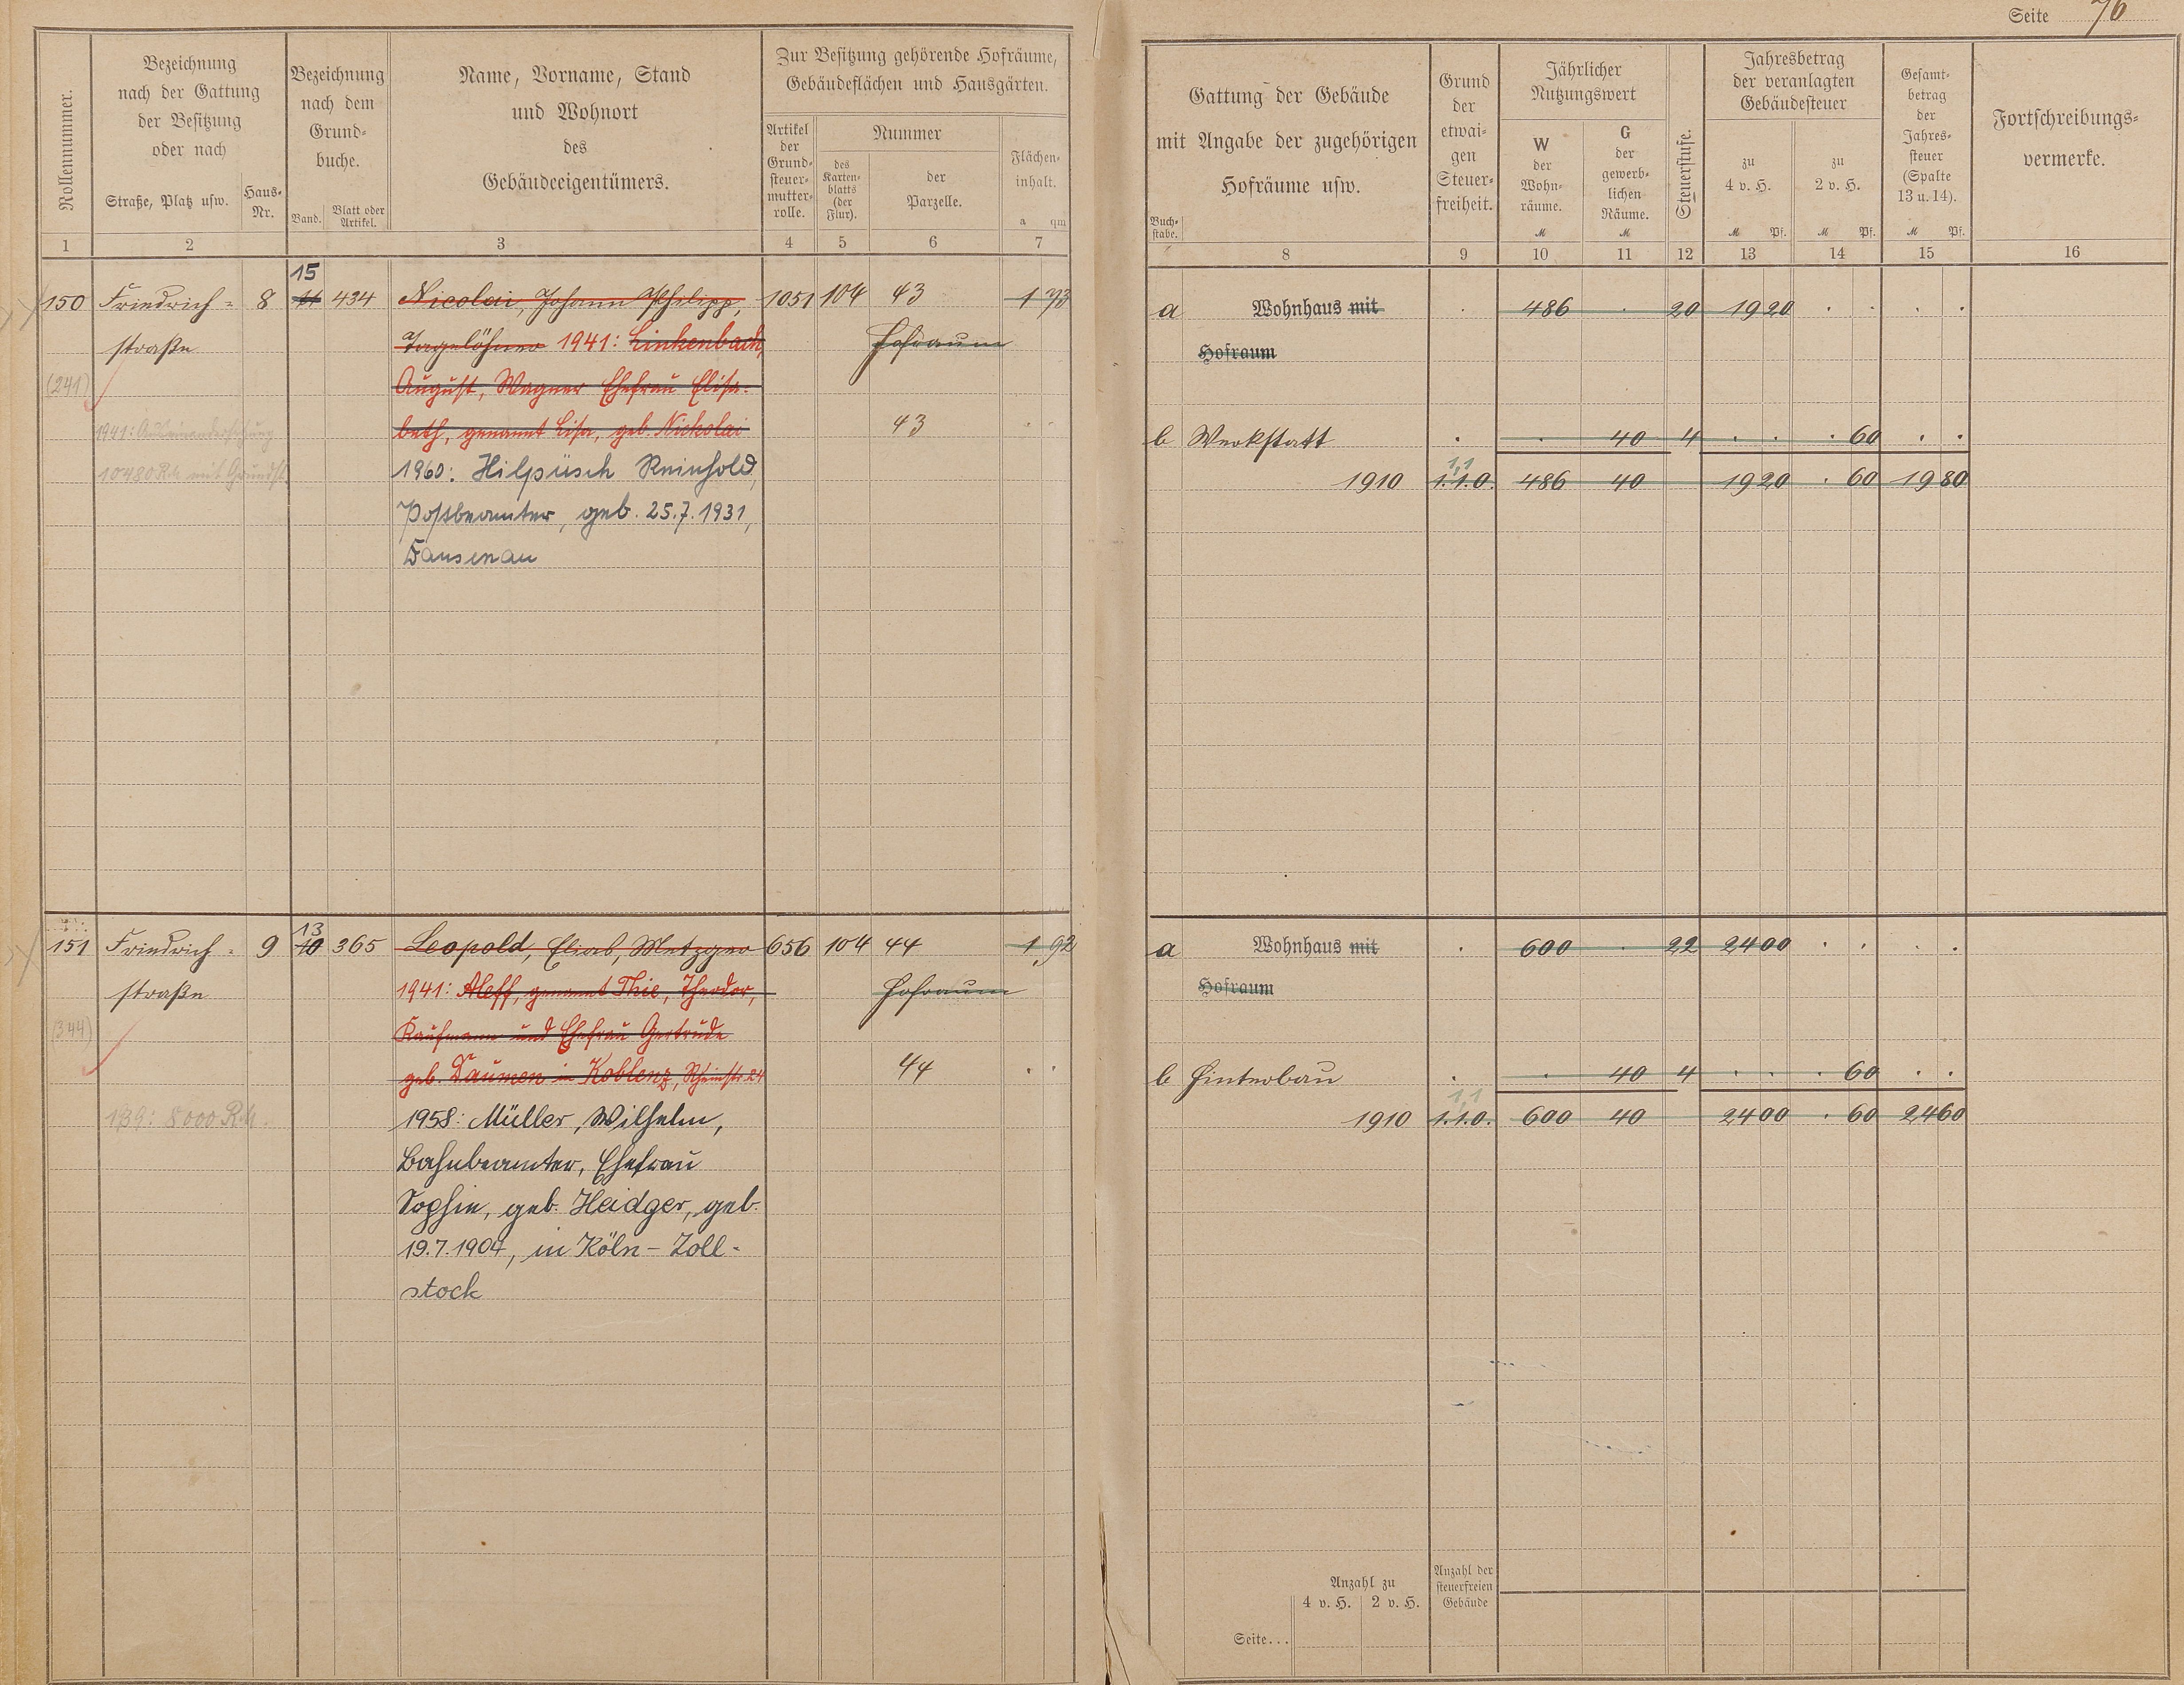 Seite 76
Rollennummer.
Bezeichnung
nach der Gattung
der Besitzung
oder nach
Straße, Platz usw.
Haus-
Nr.
Bezeichnung
nach dem
Grund-
buche.
Band.
Blatt oder
Artikel.
Name, Vorname, Stand
und Wohnort
des
Gebäudeeigentümers.
Zur Besitzung gehörende Hofräume,
Gebäudeflächen und Hausgärten.
Artikel
der
Grund-
steuer-
mutter-
rolle.
Nummer
des
Karten-
blatts
(der
Flur).
der
Parzelle.
Flächen-
inhalt.
a qm
1 2 3 4 5 6 7
Gattung der Gebäude
mit Angabe der zugehörigen
Hofräume usw.
Buch-
stabe.
Grund
der
etwai-
gen
Steuer-
freiheit.
Jährlicher
Nutzungswert
W
der
Wohn-
räume.
M
G
der
gewerb-
lichen
Räume.
M
Steuerstufe.
Jahresbetrag
der veranlagten
Gebäudesteuer
zu
4 v. H.
M Pf.
zu
2 v. H.
M Pf.
Gesamt-
betrag
der
Jahres-
steuer
(Spalte
13 u. 14).
M Pf.
Fortschreibungs-
vermerke.
8 9 10 11 12 13 14 15 16
15
150 Friedrich- 8 11 434 Nicolai, Johann Philipp, 1051 104 43 1 73
straße Tagelöhner 1941: Linkenbach, Hofraum
(241) August, Wagner Ehefrau Elisa-
1941: Auseinandersetzung beth, genannt Lisa, geb. Nickolai 43
10480 RM mit Grundst. 1960: Hilpüsch Reinhold,
Postbeamter, geb. 25.7.1931,
Dausenau
a Wohnhaus mit . 486 . 20 19 20 . . . .
Hofraum
b Werkstatt . . 40 4 . . . 60 . .
1,1
1910 1.1.0. 486 40 19 20 . 60 19 80
13
151 Friedrich- 9 10 365 Leopold, Eliab, Metzger 656 104 44 1,92
straße 1941: Aleff, genannt Thie, Theodor, Hofraum
(344) Kaufmann und Ehefrau Gertrude
geb. Daumen in Koblenz, Rheinstr. 24 44 . .
139: 8000 RM. 1958: Müller, Wilhelm,
Bahnbeamter, Ehefrau
Sophie, geb. Heidger, geb.
19.7.1904, in Köln-Zoll-
stock
a Wohnhaus mit . 600 . 22 24 00 . . . .
Hofraum
b Hinterbau . . 40 4 . . . 60 . .
1,1
1910 1.1.0. 600 40 24 00 . 60 24 60
Anzahl zu
4 v. H. 2 v. H.
Anzahl der
steuerfreien
Gebäude
Seite...